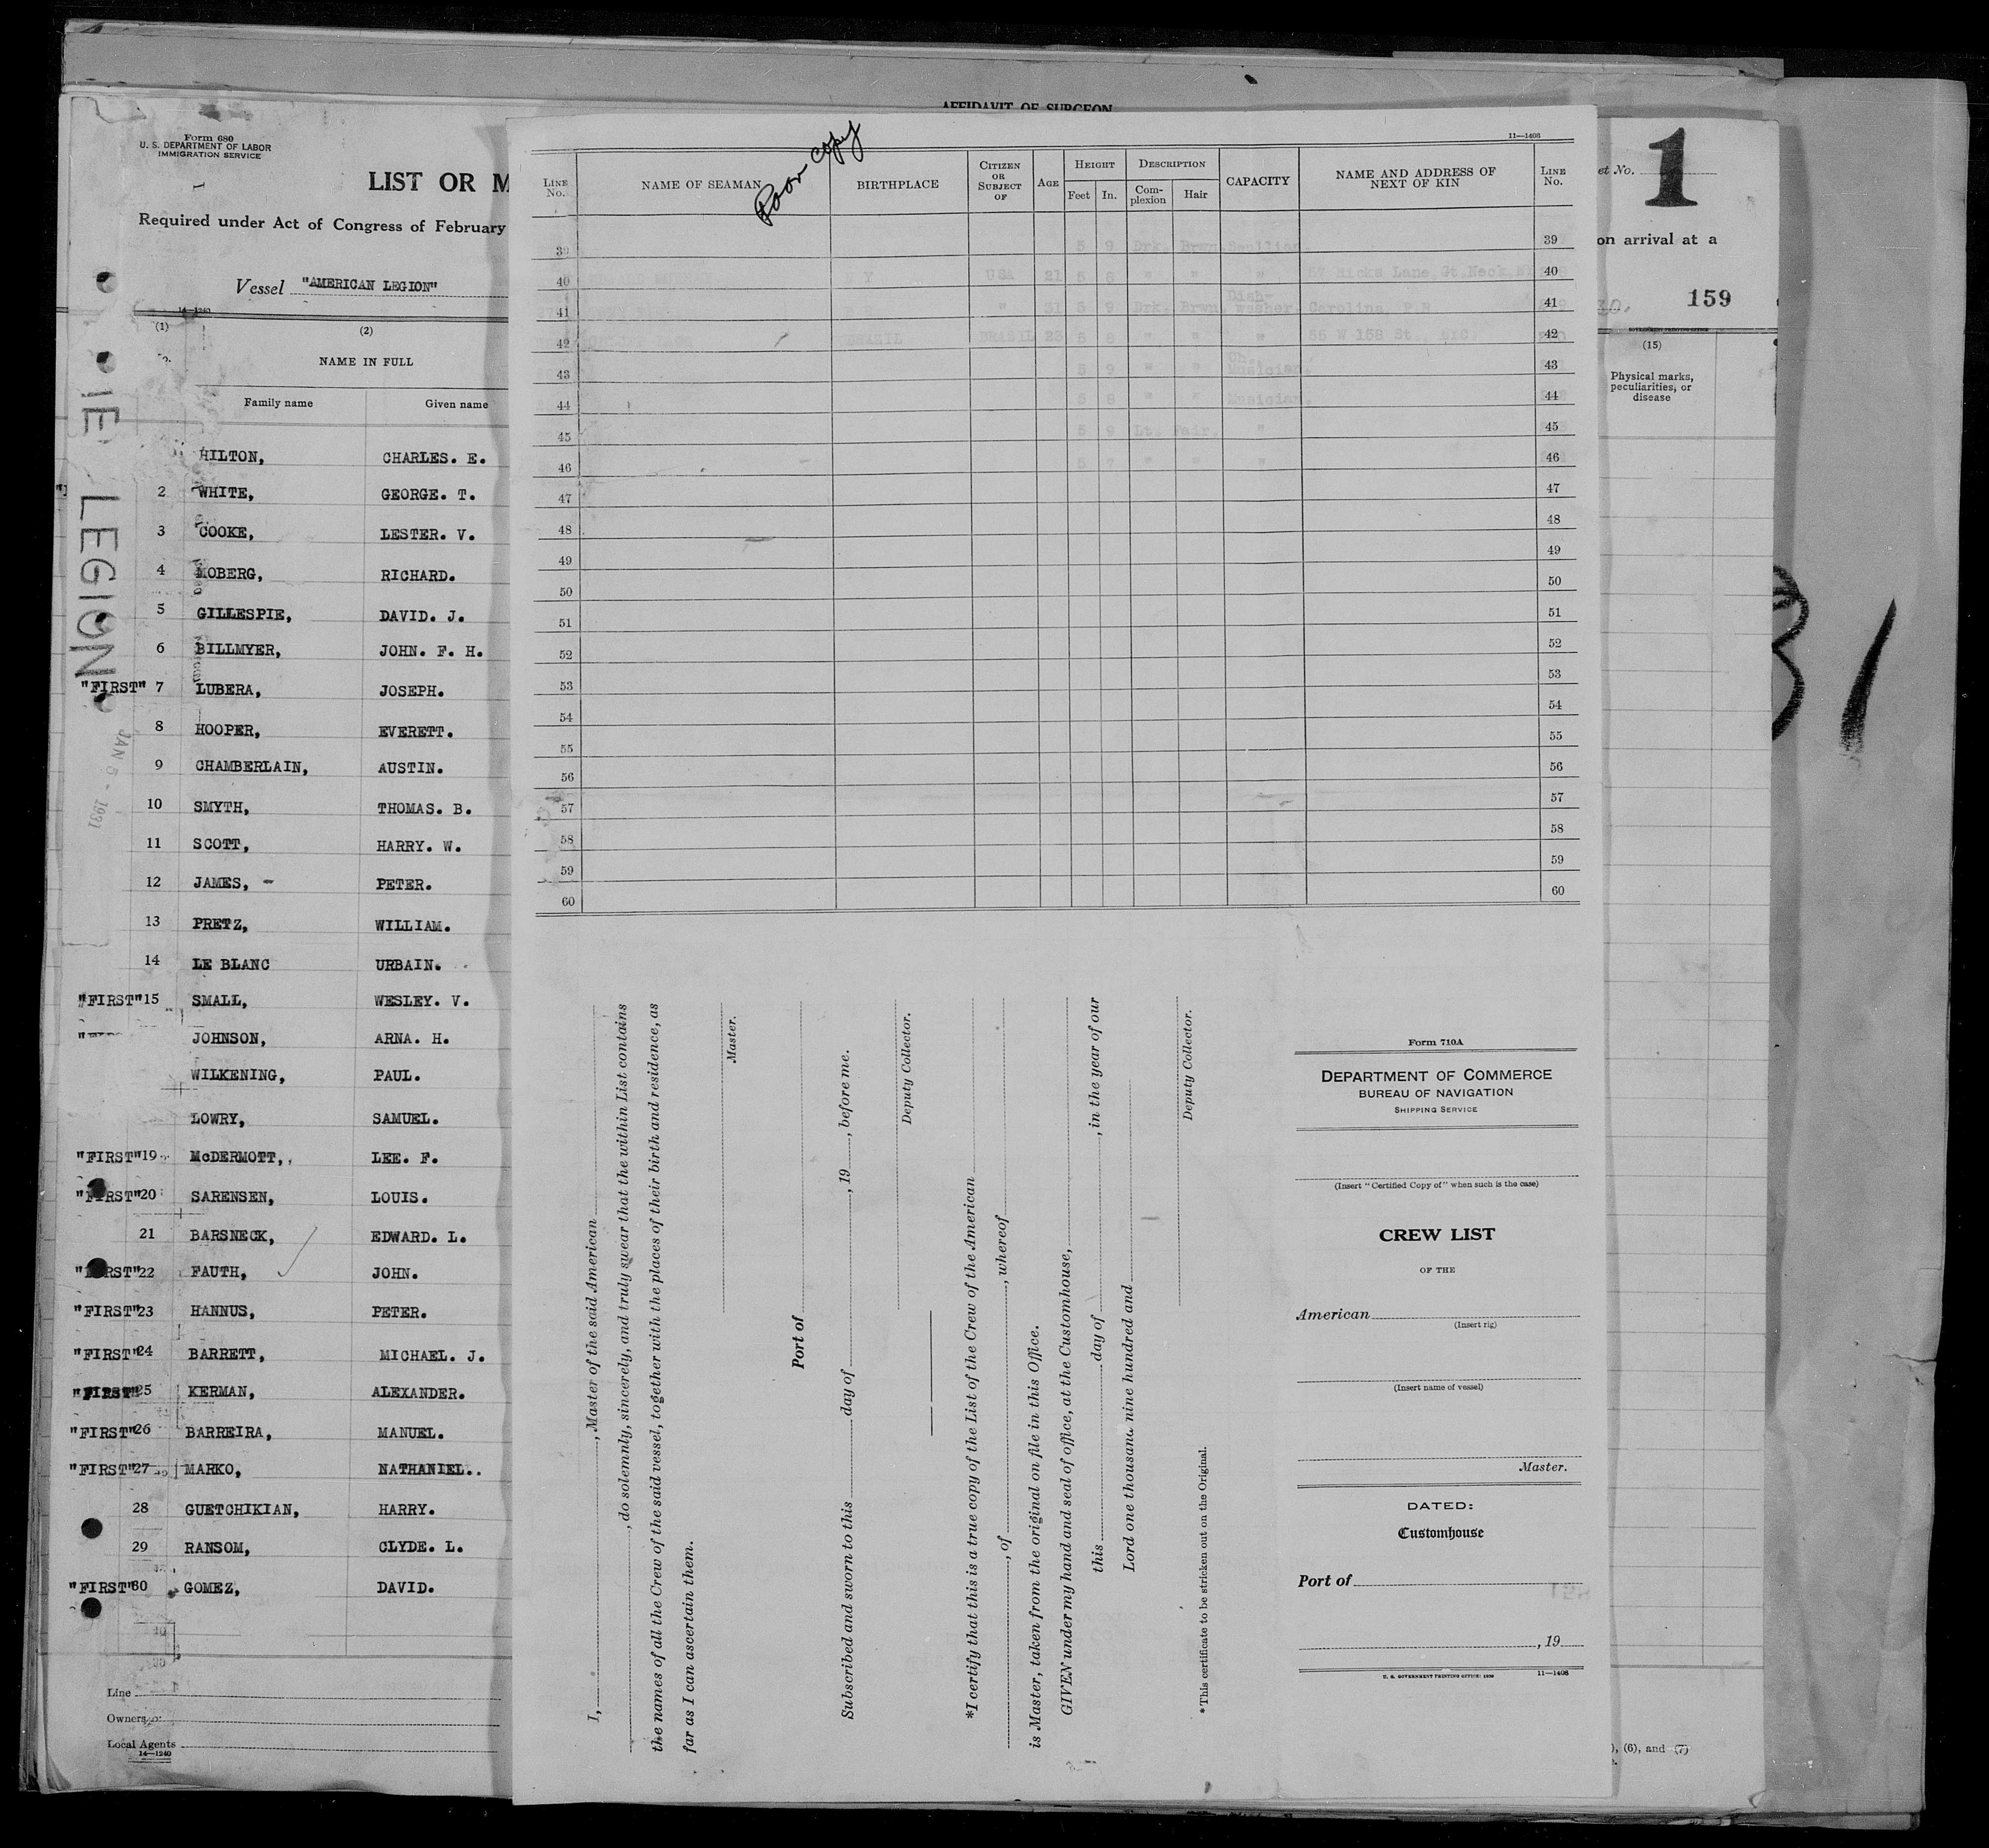 AFFIDAVIT OF SURGEON
Form 680
U. S. DEPARTMENT OF LABOR
IMMIGRATION SERVICE
LIST OR M
Required under Act of Congress of February
Vessel "AMERICAN LEGION"
14—1240
(1) (2)
NAME IN FULL
Family name Given name
HILTON, CHARLES. E.
2 WHITE, GEORGE. T.
3 COOKE, LESTER. V.
4 MOBERG, RICHARD.
5 GILLESPIE, DAVID. J.
6 BILLMYER, JOHN. F. H.
"FIRST" 7 LUBERA, JOSEPH.
8 HOOPER, EVERETT.
9 CHAMBERLAIN, AUSTIN.
10 SMYTH, THOMAS. B.
11 SCOTT, HARRY. W.
12 JAMES, - PETER.
13 PRETZ, WILLIAM.
14 LE BLANC URBAIN.
"FIRST"15 SMALL, WESLEY. V.
JOHNSON, ARNA. H.
WILKENING, PAUL.
LOWRY, SAMUEL.
"FIRST"19 McDERMOTT, LEE. F.
"FIRST"20 SARENSEN, LOUIS.
21 BARSNECK, EDWARD. L.
"FIRST"22 FAUTH, JOHN.
"FIRST"23 HANNUS, PETER.
"FIRST"24 BARRETT, MICHAEL. J.
"FIRST"25 KERMAN, ALEXANDER.
"FIRST"26 BARREIRA, MANUEL.
"FIRST"27 MARKO, NATHANIEL..
28 GUETCHIKIAN, HARRY.
29 RANSOM, CLYDE. L.
"FIRST"30 GOMEZ, DAVID.
Line
Owners
Local Agents
14—1240
LEGION
JAN 5 - 1931
Poor copy
11—1408
LINE No. NAME OF SEAMAN BIRTHPLACE CITIZEN OR SUBJECT OF AGE HEIGHT DESCRIPTION CAPACITY NAME AND ADDRESS OF NEXT OF KIN LINE No.
Feet In. Complexion Hair
39 5 9 Drk. Brwn Scullion. 39
40 USA 21 5 8 " " " 57 Hicks Lane, Gt Neck 40
41 " 31 5 9 Drk. Brwn Dish-washer. Carolina, P.R. 41
42 BRAZIL BRAZIL 23 5 8 " " " 55 W 158 St., NYC. 42
43 5 9 " " Ch. Musician. 43
44 5 8 " " Musician. 44
45 5 9 Lt. Fair. " 45
46 5 7 " " " 46
47 47
48 48
49 49
50 50
51 51
52 52
53 53
54 54
55 55
56 56
57 57
58 58
59 59
60 60
I, , Master of the said American
, do solemnly, sincerely, and truly swear that the within List contains
the names of all the Crew of the said vessel, together with the places of their birth and residence, as
far as I can ascertain them.
Master.
Port of
Subscribed and sworn to this day of , 19 , before me.
Deputy Collector.
*I certify that this is a true copy of the List of the Crew of the American
, of , whereof
is Master, taken from the original on file in this Office.
GIVEN under my hand and seal of office, at the Customhouse,
this day of , in the year of our
Lord one thousand nine hundred and
Deputy Collector.
*This certificate to be stricken out on the Original.
Form 710A
DEPARTMENT OF COMMERCE
BUREAU OF NAVIGATION
SHIPPING SERVICE
(Insert "Certified Copy of" when such is the case)
CREW LIST
OF THE
American
(Insert rig)
(Insert name of vessel)
Master.
DATED:
Customhouse
Port of
, 19
U. S. GOVERNMENT PRINTING OFFICE: 1930 11—1408
et No. 1
on arrival at a
30, 159
GOVERNMENT PRINTING OFFICE
(15)
Physical marks,
peculiarities, or
disease
), (6), and (7)
31